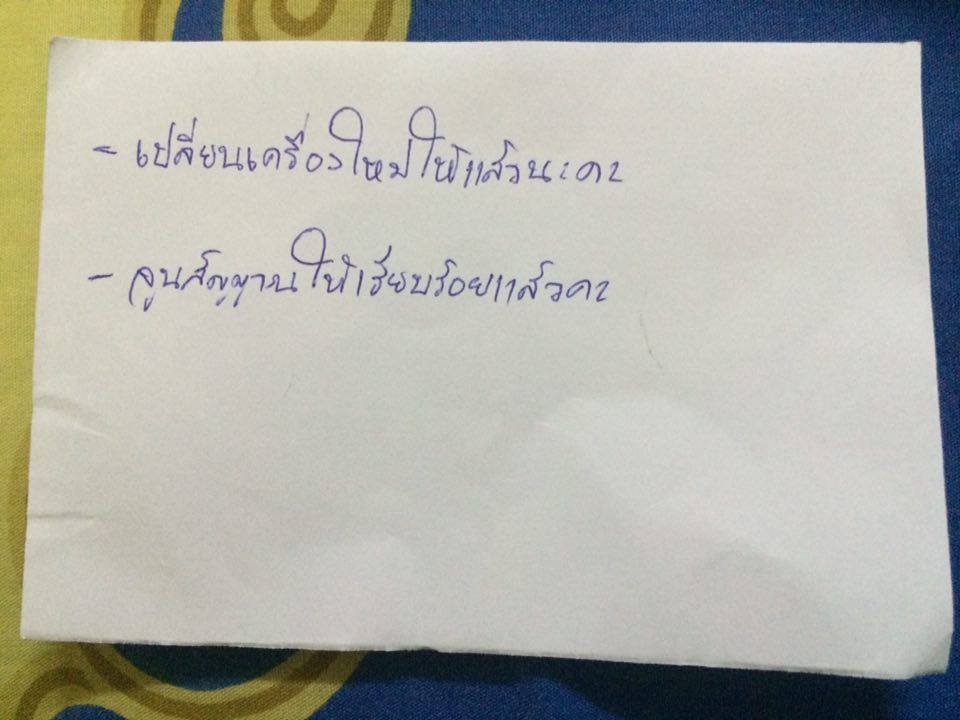 - เปลี่ยนเครื่องใหม่ให้แล้วนะคะ
- จูนสัญญานให้เรียบร้อยแล้วคะ